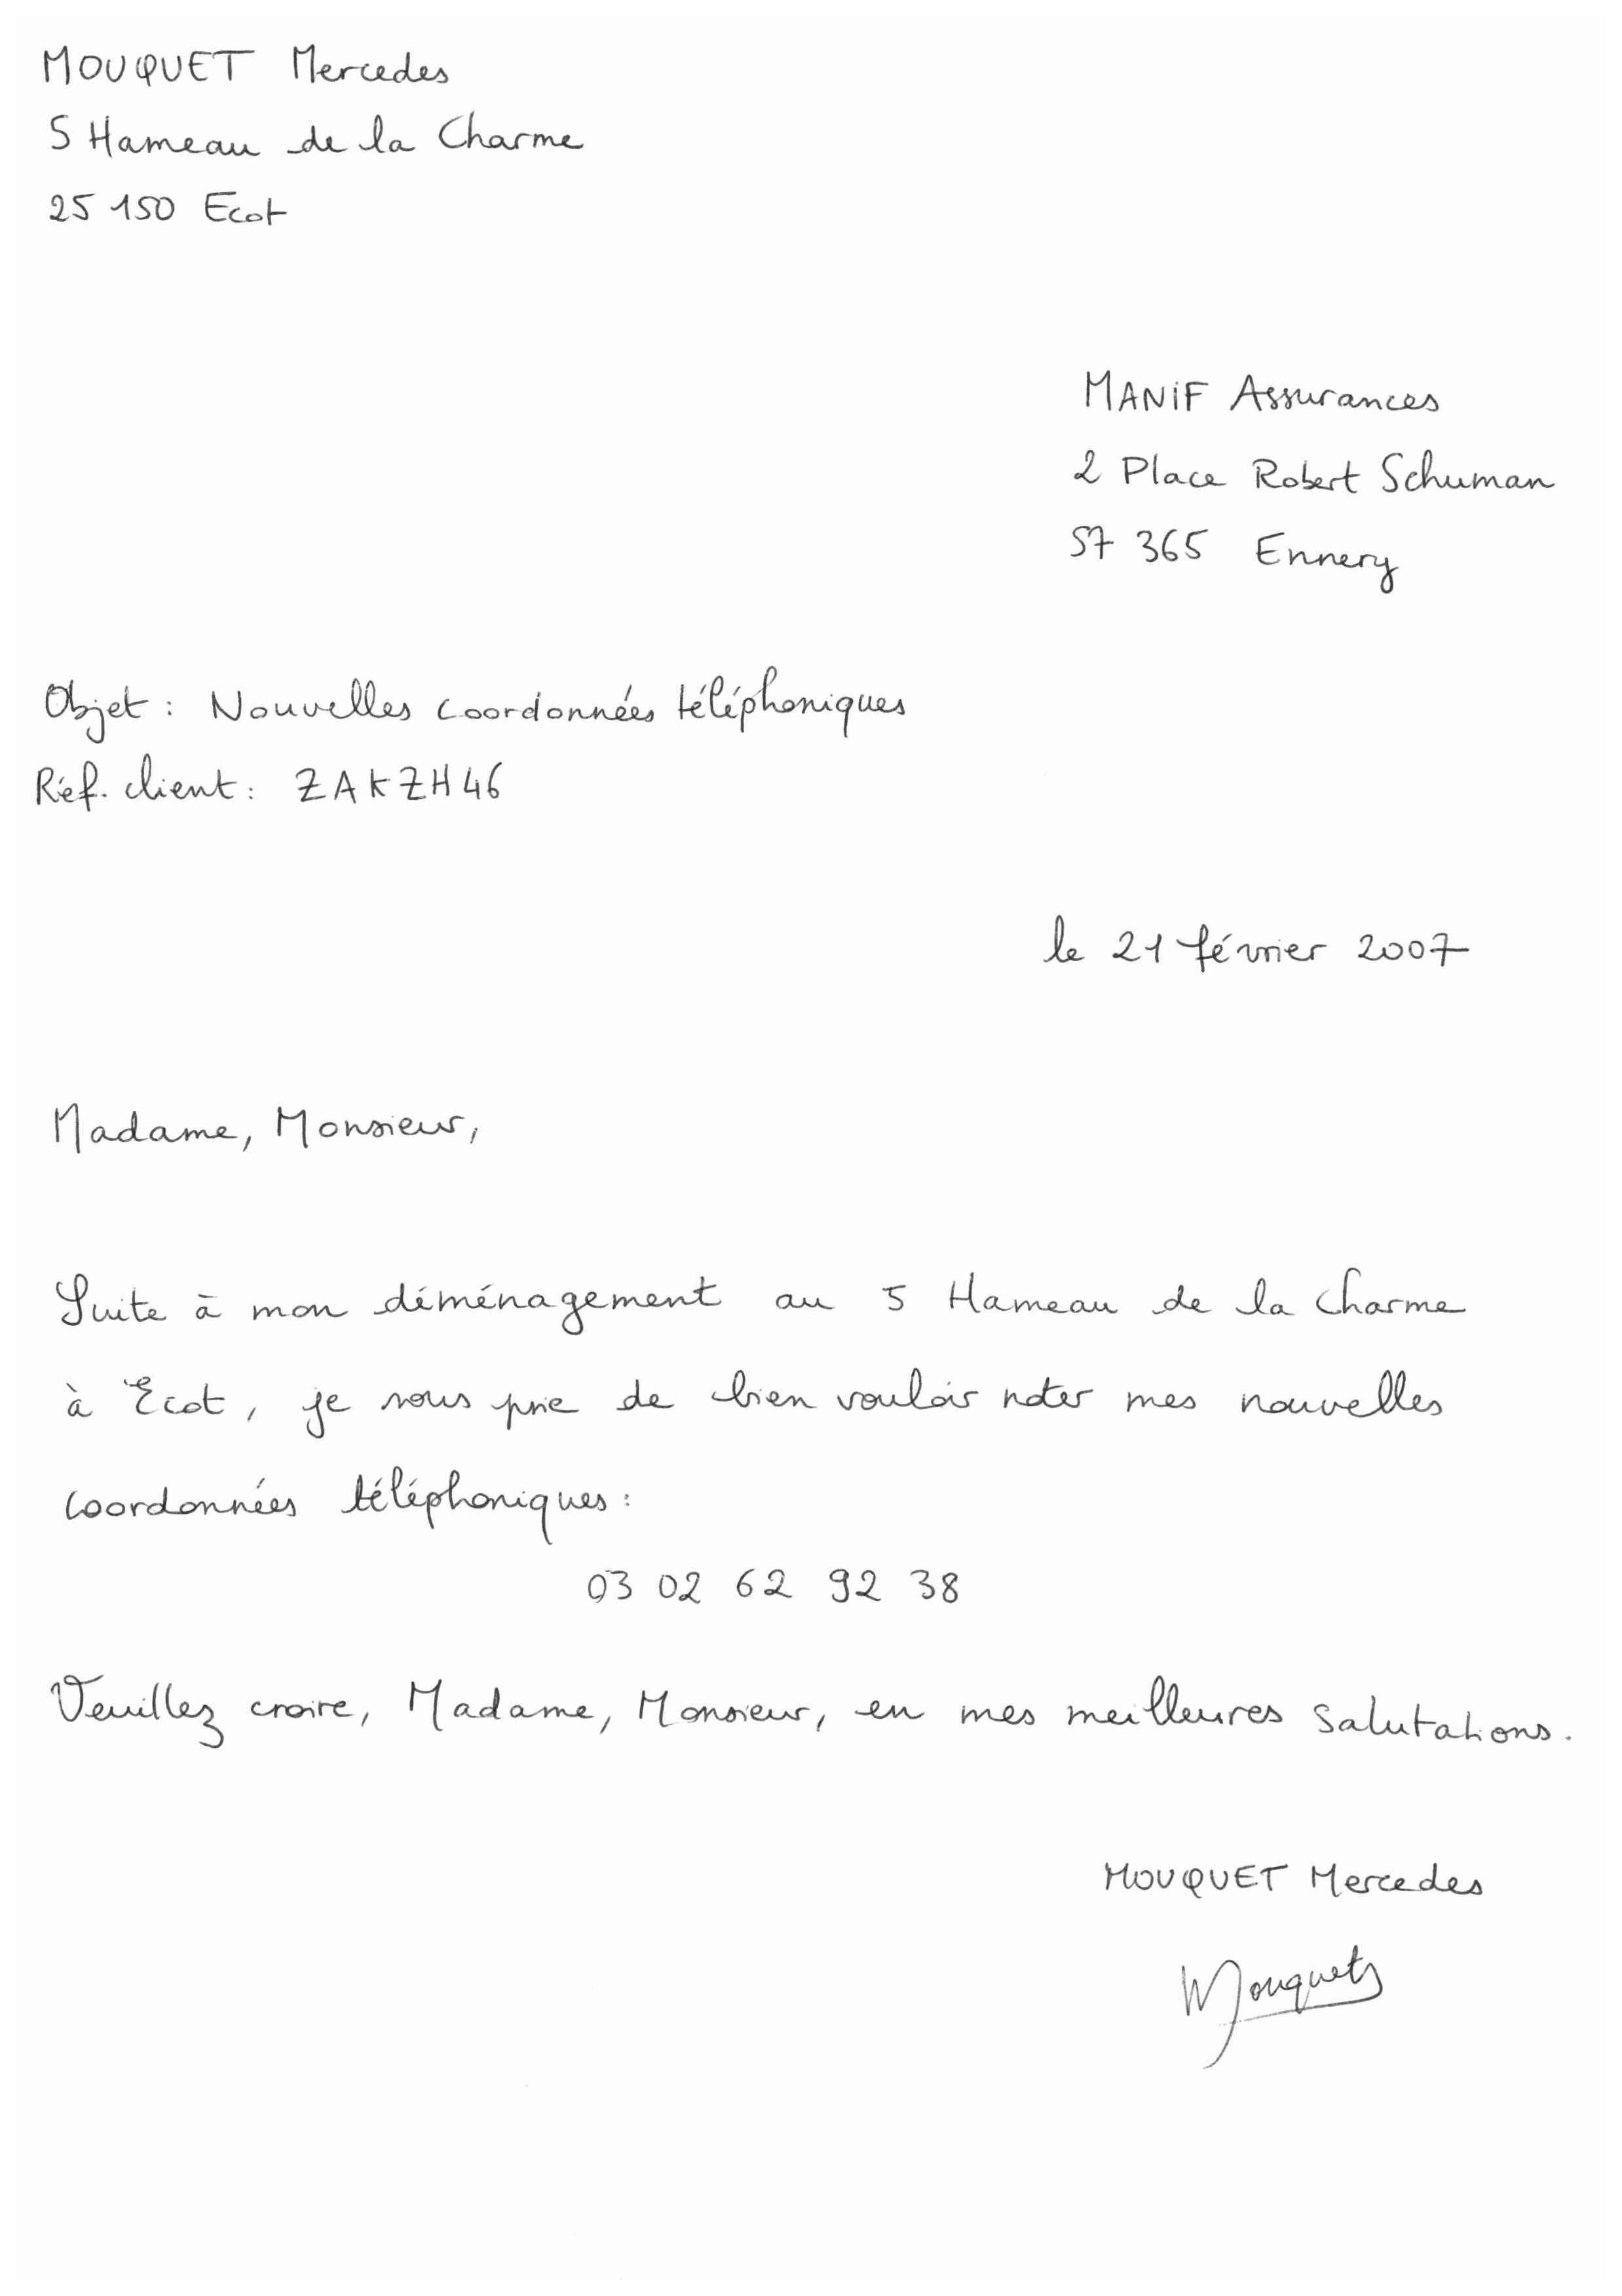 MOUQUET Mercedes
5 Hameau de la Charme
25 150 Ecot
MANIF Assurances
2 Place Robert Schuman
57 365 Ennery
Objet : Nouvelles coordonnées téléphoniques
Réf. client : ZAKZH46
le 21 février 2007
Madame, Monsieur,
Suite à mon déménagement au 5 Hameau de la Charme
à Ecot, je vous prie de bien vouloir noter mes nouvelles
coordonnées téléphoniques :
03 02 62 92 38
Veuillez croire, Madame, Monsieur, en mes meilleures salutations.
MOUQUET Mercedes
Mouquet